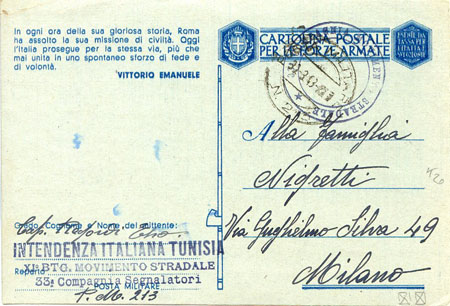 In ogni ora della sua gloriosa storia, Roma
ha assolto la sua missione di civiltà. Oggi
l'Italia prosegue per la stessa via, più che
mai unita in uno spontaneo sforzo di fede e
di volontà.
VITTORIO EMANUELE
CARTOLINA POSTALE
PER LE FORZE ARMATE
ESENTE DA
TASSA PER
L'ITALIA E
STRADALE
Alla famiglia
Nigretti
Via Guglielmo Silva 49
Milano
Grado, Cognome e Nome del mittente:
INTENDENZA ITALIANA TUNISIA
XI° BTG. MOVIMENTO STRADALE
Reparto
33ª Compagnia Segnalatori
POSTA MILITARE
P.M. 213